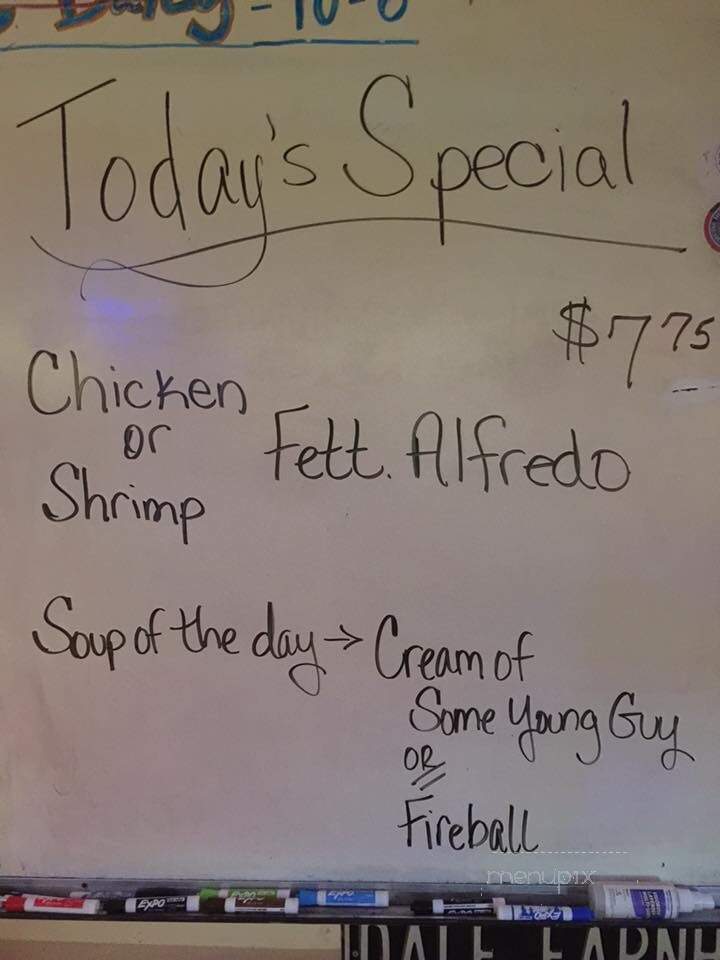 Daily - 10-6
Today's Special
$7 75
Chicken
or
Shrimp
Fett. Alfredo
Soup of the day → Cream of
Some Young Guy
OR
Fireball
menupix
EXPO
EXPO
DALE EARNH